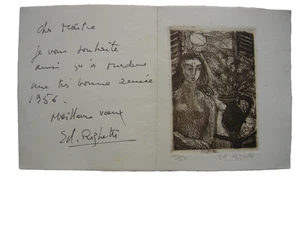 Cher Maître
je vous souhaite
ainsi qu'à Madame
une très bonne année
1956.
Meilleurs vœux
Ed. Righetti